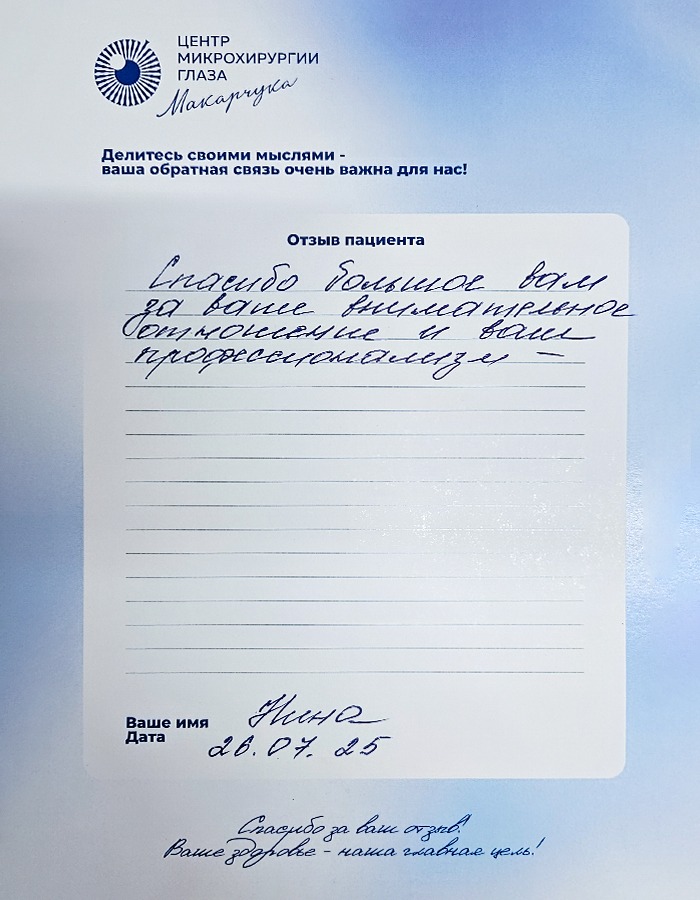 ЦЕНТР
МИКРОХИРУРГИИ
ГЛАЗА
Макарчука
Делитесь своими мыслями -
ваша обратная связь очень важна для нас!
Отзыв пациента
Спасибо большое вам
за ваше внимательное
отношение и ваш
профессионализм –
Ваше имя Нина
Дата 26.07.25
Спасибо за ваш отзыв!
Ваше здоровье - наша главная цель!